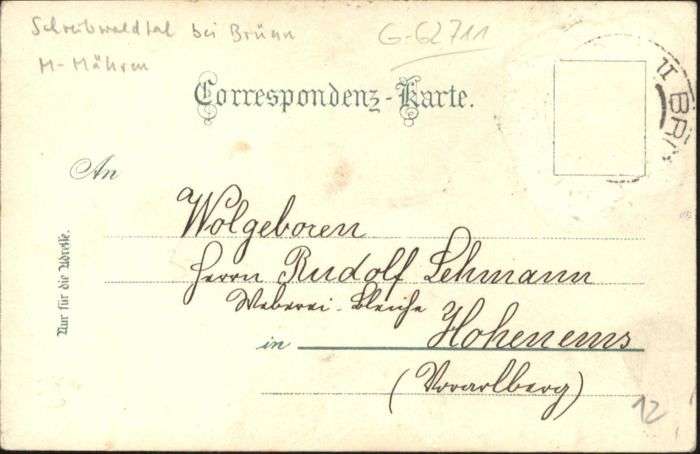 Schreibwaldtal bei Brünn
M-Mähren
G-62711
Correspondenz-Karte.
BRÜ
An
Wolgeboren
Herrn Rudolf Lehmann
Weberei-Bleiche
in Hohenems
(Vorarlberg)
Nur für die Adresse.
12